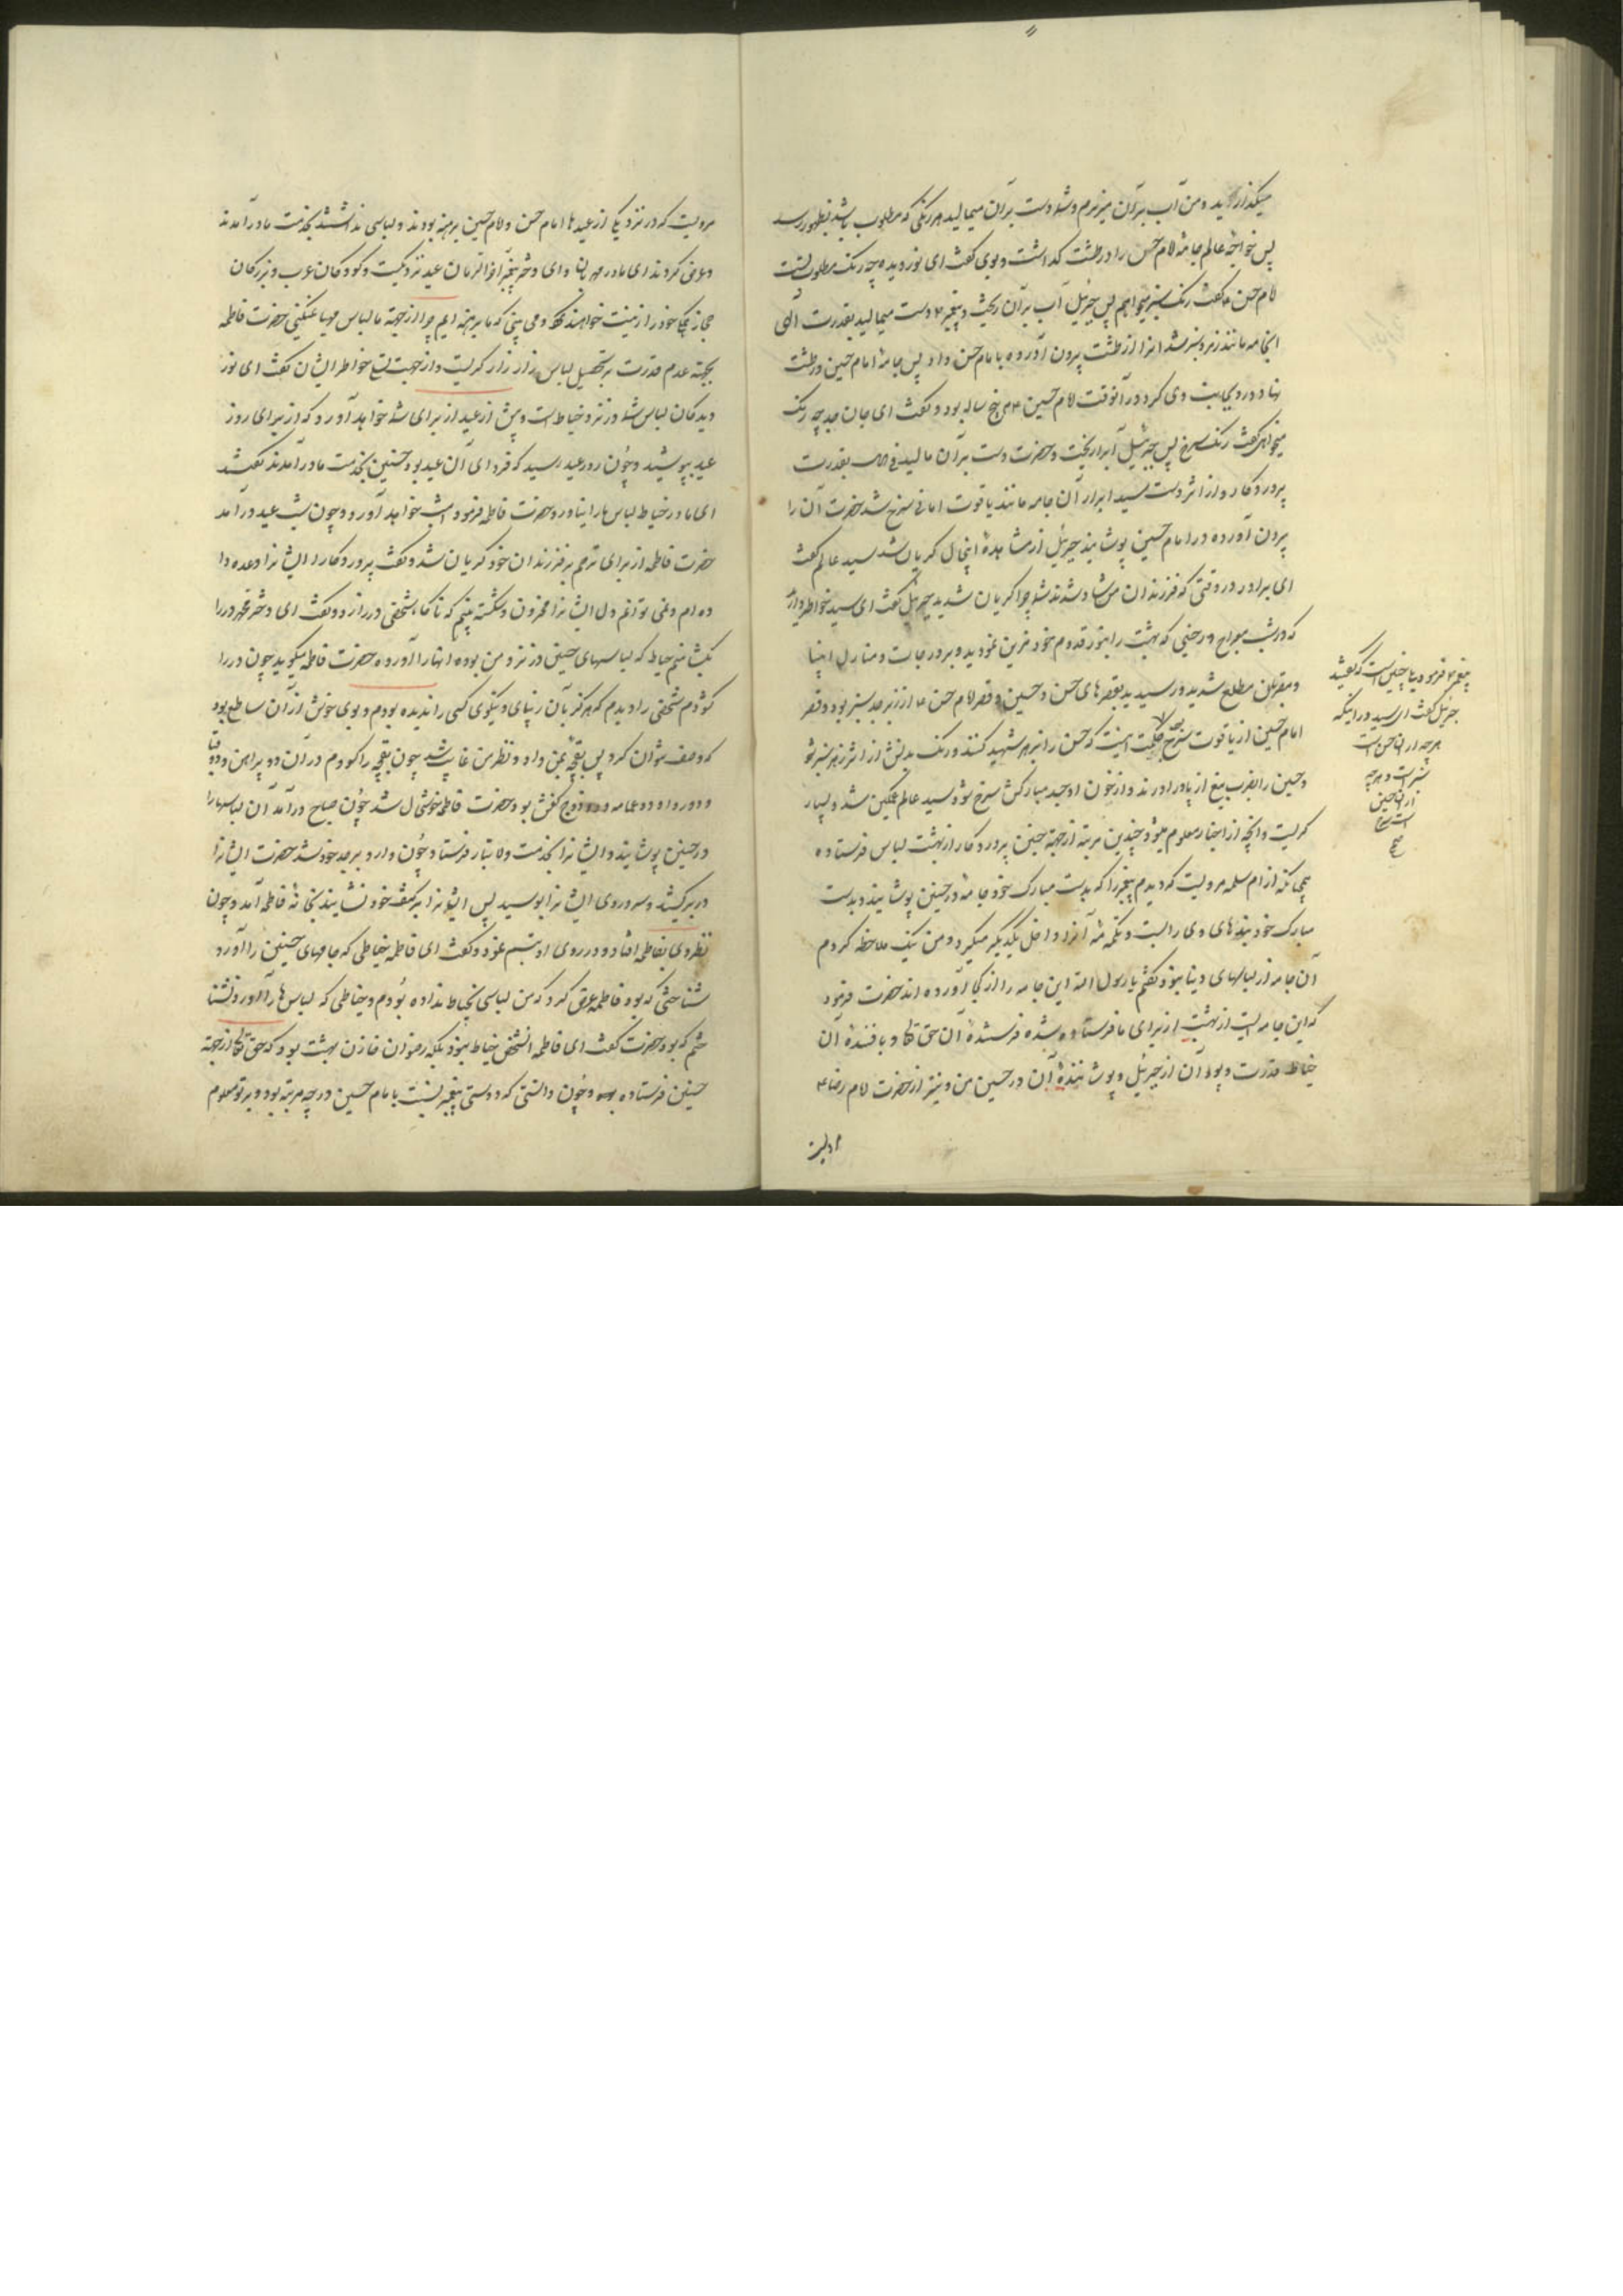 میگذارید و من آب بر آن میریزم و شما دست بر آن میمالید هر رنگی که مطلوب باشد بظهور رسد
پس خواجه عالم جامهٔ امام حسن را در طشت گذاشت و بوی گفت ای نور دیده چه رنگ مطلوب تست
امام حسن گفت رنگ سبز میخواهم پس جبرئیل آب بر آن ریخت و پیغمبر دست میمالید بقدرت الهی
انجامه مانند زمرد سبز شد انرا از طشت بیرون آورده بامام حسن داد پس جامهٔ امام حسین در طشت
نهاد و روی بوی کرد و در آنوقت امام حسین پنج ساله بود و گفت ای جان جد چه رنگ
میخواهی گفت رنگ سرخ پس جبرئیل آب را ریخت و حضرت دست بر آن مالید بقدرت
پروردکار و از اثر دست سید ابرار آن جامه مانند یاقوت سرخ شد حضرت آن را
بیرون آورده در امام حسین پوشانید جبرئیل از مشاهدهٔ اینحال گریان شد سید عالم گفت
ای برادر در وقتی که فرزندان من شاد شدند شما چرا گریان شدید جبرئیل گفت ای سید بخاطر دارید
که در شب معراج در حینی که بهشت را بنور قدوم خود مزین نمودید و بر درجات و منازل انبیا
و مقربان مطلع شدید و رسیدید بقصرهای حسن و حسین و قصر امام حسن از زبرجد سبز بود و قصر
امام حسین از یاقوت سرخ حکمت اینست که حسن را بزهر شهید کنند و رنگ بدنش از اثر زهر سبز شود
و حسین را بضرب تیغ از پا در آورند و از خون او جسد مبارکش سرخ شود سید عالم غمگین شد و بسیار
گریست و آنچه از اخبار معلوم میشود چندین مرتبه از جهة حسنین پروردکار از بهشت لباس فرستاده
چنانکه از ام سلمه مرویست که دیدم پیغمبر را که بدست مبارک خود جامهٔ در حسین پوشانید و بدست
مبارک خود بندهای وی را بست و تکمه‌های آنرا داخل یکدیگر میکرد و من نیک ملاحظه کردم
آن جامه از لباسهای دنیا نبود گفتم یا رسول الله این جامه را از کجا آورده اند حضرت فرمود
که این جامه ایست از بهشت از برای ما فرستاده شده فرستندهٔ آن حق تعالی و بافندهٔ آن
خیاط قدرت و بود آن از جبرئیل و پوشانندهٔ آن در حسین من و نیز از حضرت امام رضا ع
پیغمبر فرمود بیا چنین است که گفتید
جبرئیل گفت ای سید در اینکه
هر چه از آن حسن است
سبز است و هر چه
از آن حسین
است سرخ
صح
مرویست
مرویست که در نزدیکی از عیدها امام حسن و امام حسین برهنه بودند و لباسی نداشتند بخدمت مادر آمدند
و عرض کردند ای مادر مهربان و ای دختر پیغمبر آخر الزمان عید نزدیکست و کودکان عرب و بزرکان
حجاز همگی خود را زینت خواهند و می بینی که ما برهنه ایم چرا از جهة ما لباس مهیا نمیکنی حضرت فاطمه
بجهة عدم قدرت بر تحصیل لباس زار زار گریست و از جهت تسلی خاطر ایشان گفت ای نور
دیدکان لباس شما در نزد خیاط است و پیش از عید از برای شما خواهد آورد که از برای روز
عید بپوشید و چون روز عید رسید که فردای آن عید بود حسنین بخدمت مادر آمدند گفتند
ای مادر خیاط لباس ما را نیاورد حضرت فاطمه فرمود امشب خواهد آورد و چون شب عید در آمد
حضرت فاطمه از برای ترحم بر فرزندان خود گریان شد و گفت پروردکارا ایشانرا وعده دا
ده ام و نمی توانم دل ایشانرا محزون و شکسته بینم که ناکاه شخصی در را زد و گفت ای دختر پیغمبر در را
بگشا منم خیاط که لباسهای حسنین در نزد من بوده اینها را آورده حضرت فاطمه میگوید چون در را
گشودم شخصی را دیدم که هرگز بآن زیبائی و نیکوئی کسی را ندیده بودم و بوی خوش از آن ساطع بود
که وصف نتوان کرد پس بقچهٔ بمن داد و از نظر من غایب شد چون بقچه را گشودم در آن دو پیراهن و دو قبا
و دو ردا و دو عمامه و دو زوج کفش بود حضرت فاطمه خوشحال شد چون صبح در آمد آن لباسها را
در حسنین پوشانید و ایشانرا بخدمت فرستاد و چون وارد بر جد خود شدند حضرت ایشانرا
در بر کشید و سر و روی ایشانرا بوسید پس ایشانرا بر کتف خود نشانید بخانهٔ فاطمه آمد و چون
نظر وی بفاطمه افتاد در روی او تبسم نمود و گفت ای فاطمه خیاطی که جامهای حسنین را آورد
شناختی که بود فاطمه عرض کرد که من لباسی بخیاط نداده بودم و خیاطی که لباس‌ها را آورد نشنا
ختم که بود حضرت گفت ای فاطمه آنشخص خیاط نبود بلکه رضوان خازن بهشت بود که حق تعالی از جهة
حسنین فرستاده و چون دانستی که دوستی پیغمبر نسبت بامام حسین در چه مرتبه بود و بر تو معلوم